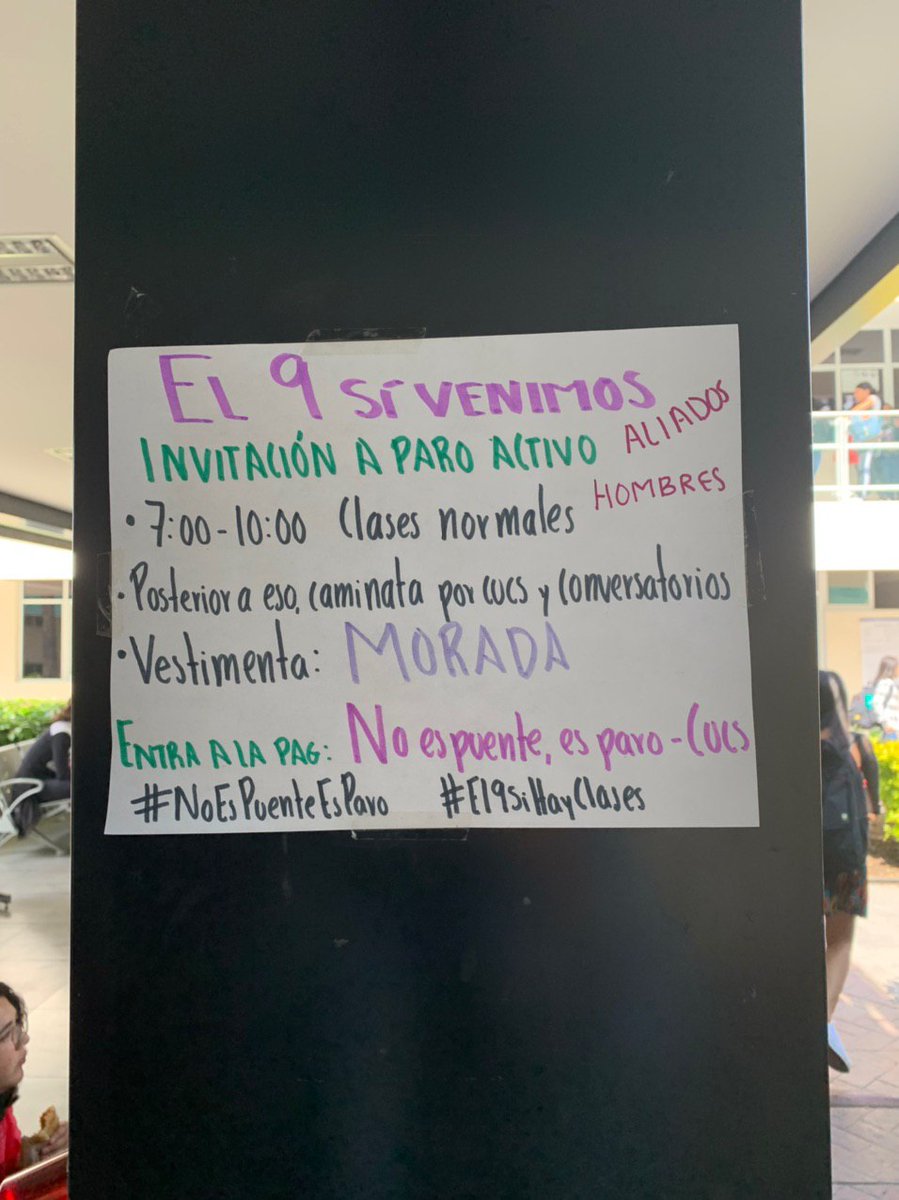 EL 9 SÍ VENIMOS
INVITACIÓN A PARO ACTIVO
ALIADOS
HOMBRES
• 7:00-10:00 Clases normales
• Posterior a eso, caminata por CUCS y conversatorios
• Vestimenta: MORADA
ENTRA A LA PAG: No es puente, es paro - CUCS
#NoEsPuenteEsParo #El9SiHayClases